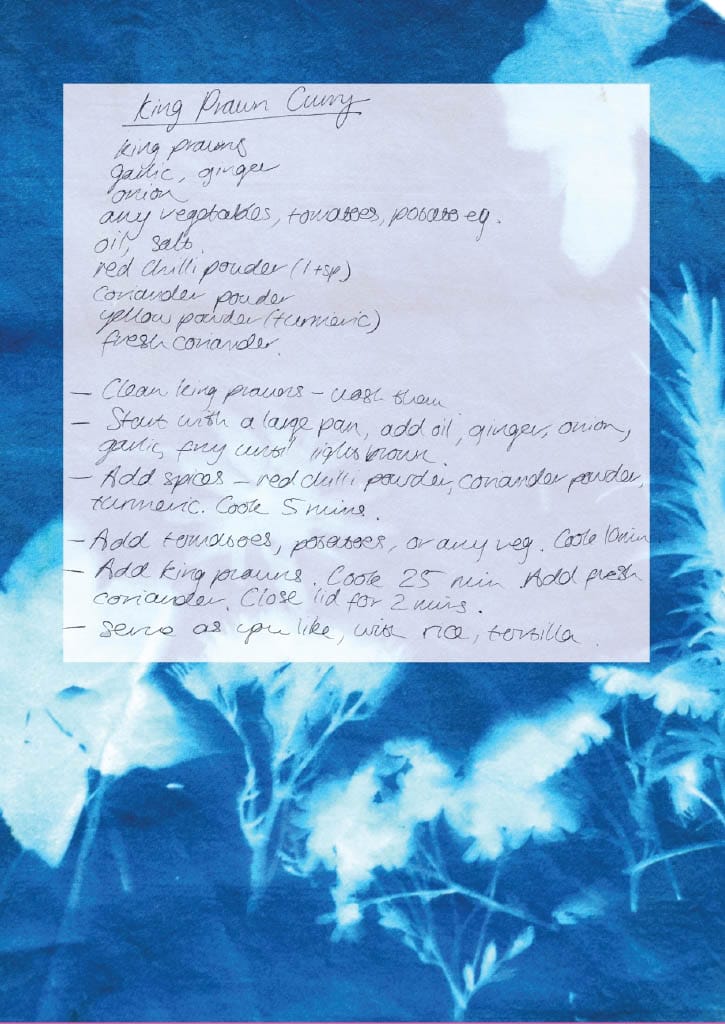 King Prawn Curry
king prawns
garlic, ginger
onion
any vegetables, tomatoes, potato eg.
oil, salt.
red chilli powder (1 tsp)
coriander powder
yellow powder (turmeric)
fresh coriander.
– Clean king prawns – wash them
– Start with a large pan, add oil, ginger, onion,
garlic, fry until light brown.
– Add spices – red chilli powder, coriander powder,
turmeric. Cook 5 mins.
– Add tomatoes, potatoes, or any veg. Cook 10 min
– Add king prawns. Cook 25 min. Add fresh
coriander. Close lid for 2 mins.
– serve as you like, with rice, tortilla.